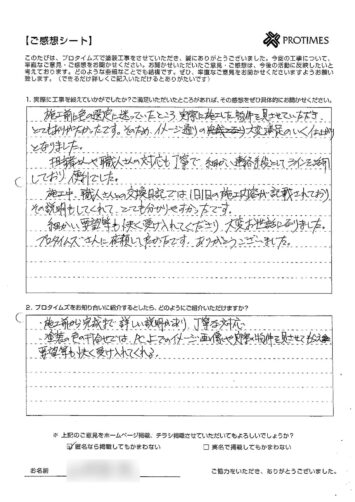 【ご感想シート】
PROTIMES
このたびは、プロタイムズで塗装工事をさせていただき、誠にありがとうございました。今回の工事について、
率直なご意見・ご感想をお聞かせください。お聞かせいただいたご意見・ご感想は、今後の活動に反映したいと
考えております。どのような些細なことでも結構です。ぜひ、率直なご意見をお聞かせくださいますようお願い
致します。（できるだけ詳しくご記入いただけるとありがたいです）
1. 実際に工事を終えていかがでしたか？ご満足いただいたところがあれば、その感想をぜひ具体的にお聞かせください。
施工前に色の選定に迷っていたところ実際に施工した物件を見させていただき、
とてもありがたかったです。そのため、イメージ通りの 大変満足のいく仕上がり
となりました。
担当者 や職人さんの対応も丁寧で、細かい連絡手段としてラインを活用
しており便利でした。
施工中、職人さんとの交換日記では1日1日の施工内容が記載されており
その説明もしてくれて、とても分かりやすかったです。
細かい要望等も快く受け入れてくださり、大変お世話になりました。
プロタイムズさんに依頼して良かったです。ありがとうございました。
2. プロタイムズをお知り合いに紹介するとしたら、どのようにご紹介いただけますか？
・施工前から完成まで詳しい説明があり、丁寧な対応
・塗装の色の打合せでは、PC上でのイメージ画像や実際の物件を見させてもらえる
要望等も快く受け入れてくれる。
※ 上記のご意見をホームページ掲載、チラシ掲載させていただいてもよろしいでしょうか？
☑ 匿名なら掲載してもかまわない □ 実名で掲載してもかまわない
お名前
ご協力をいただき、ありがとうございました。